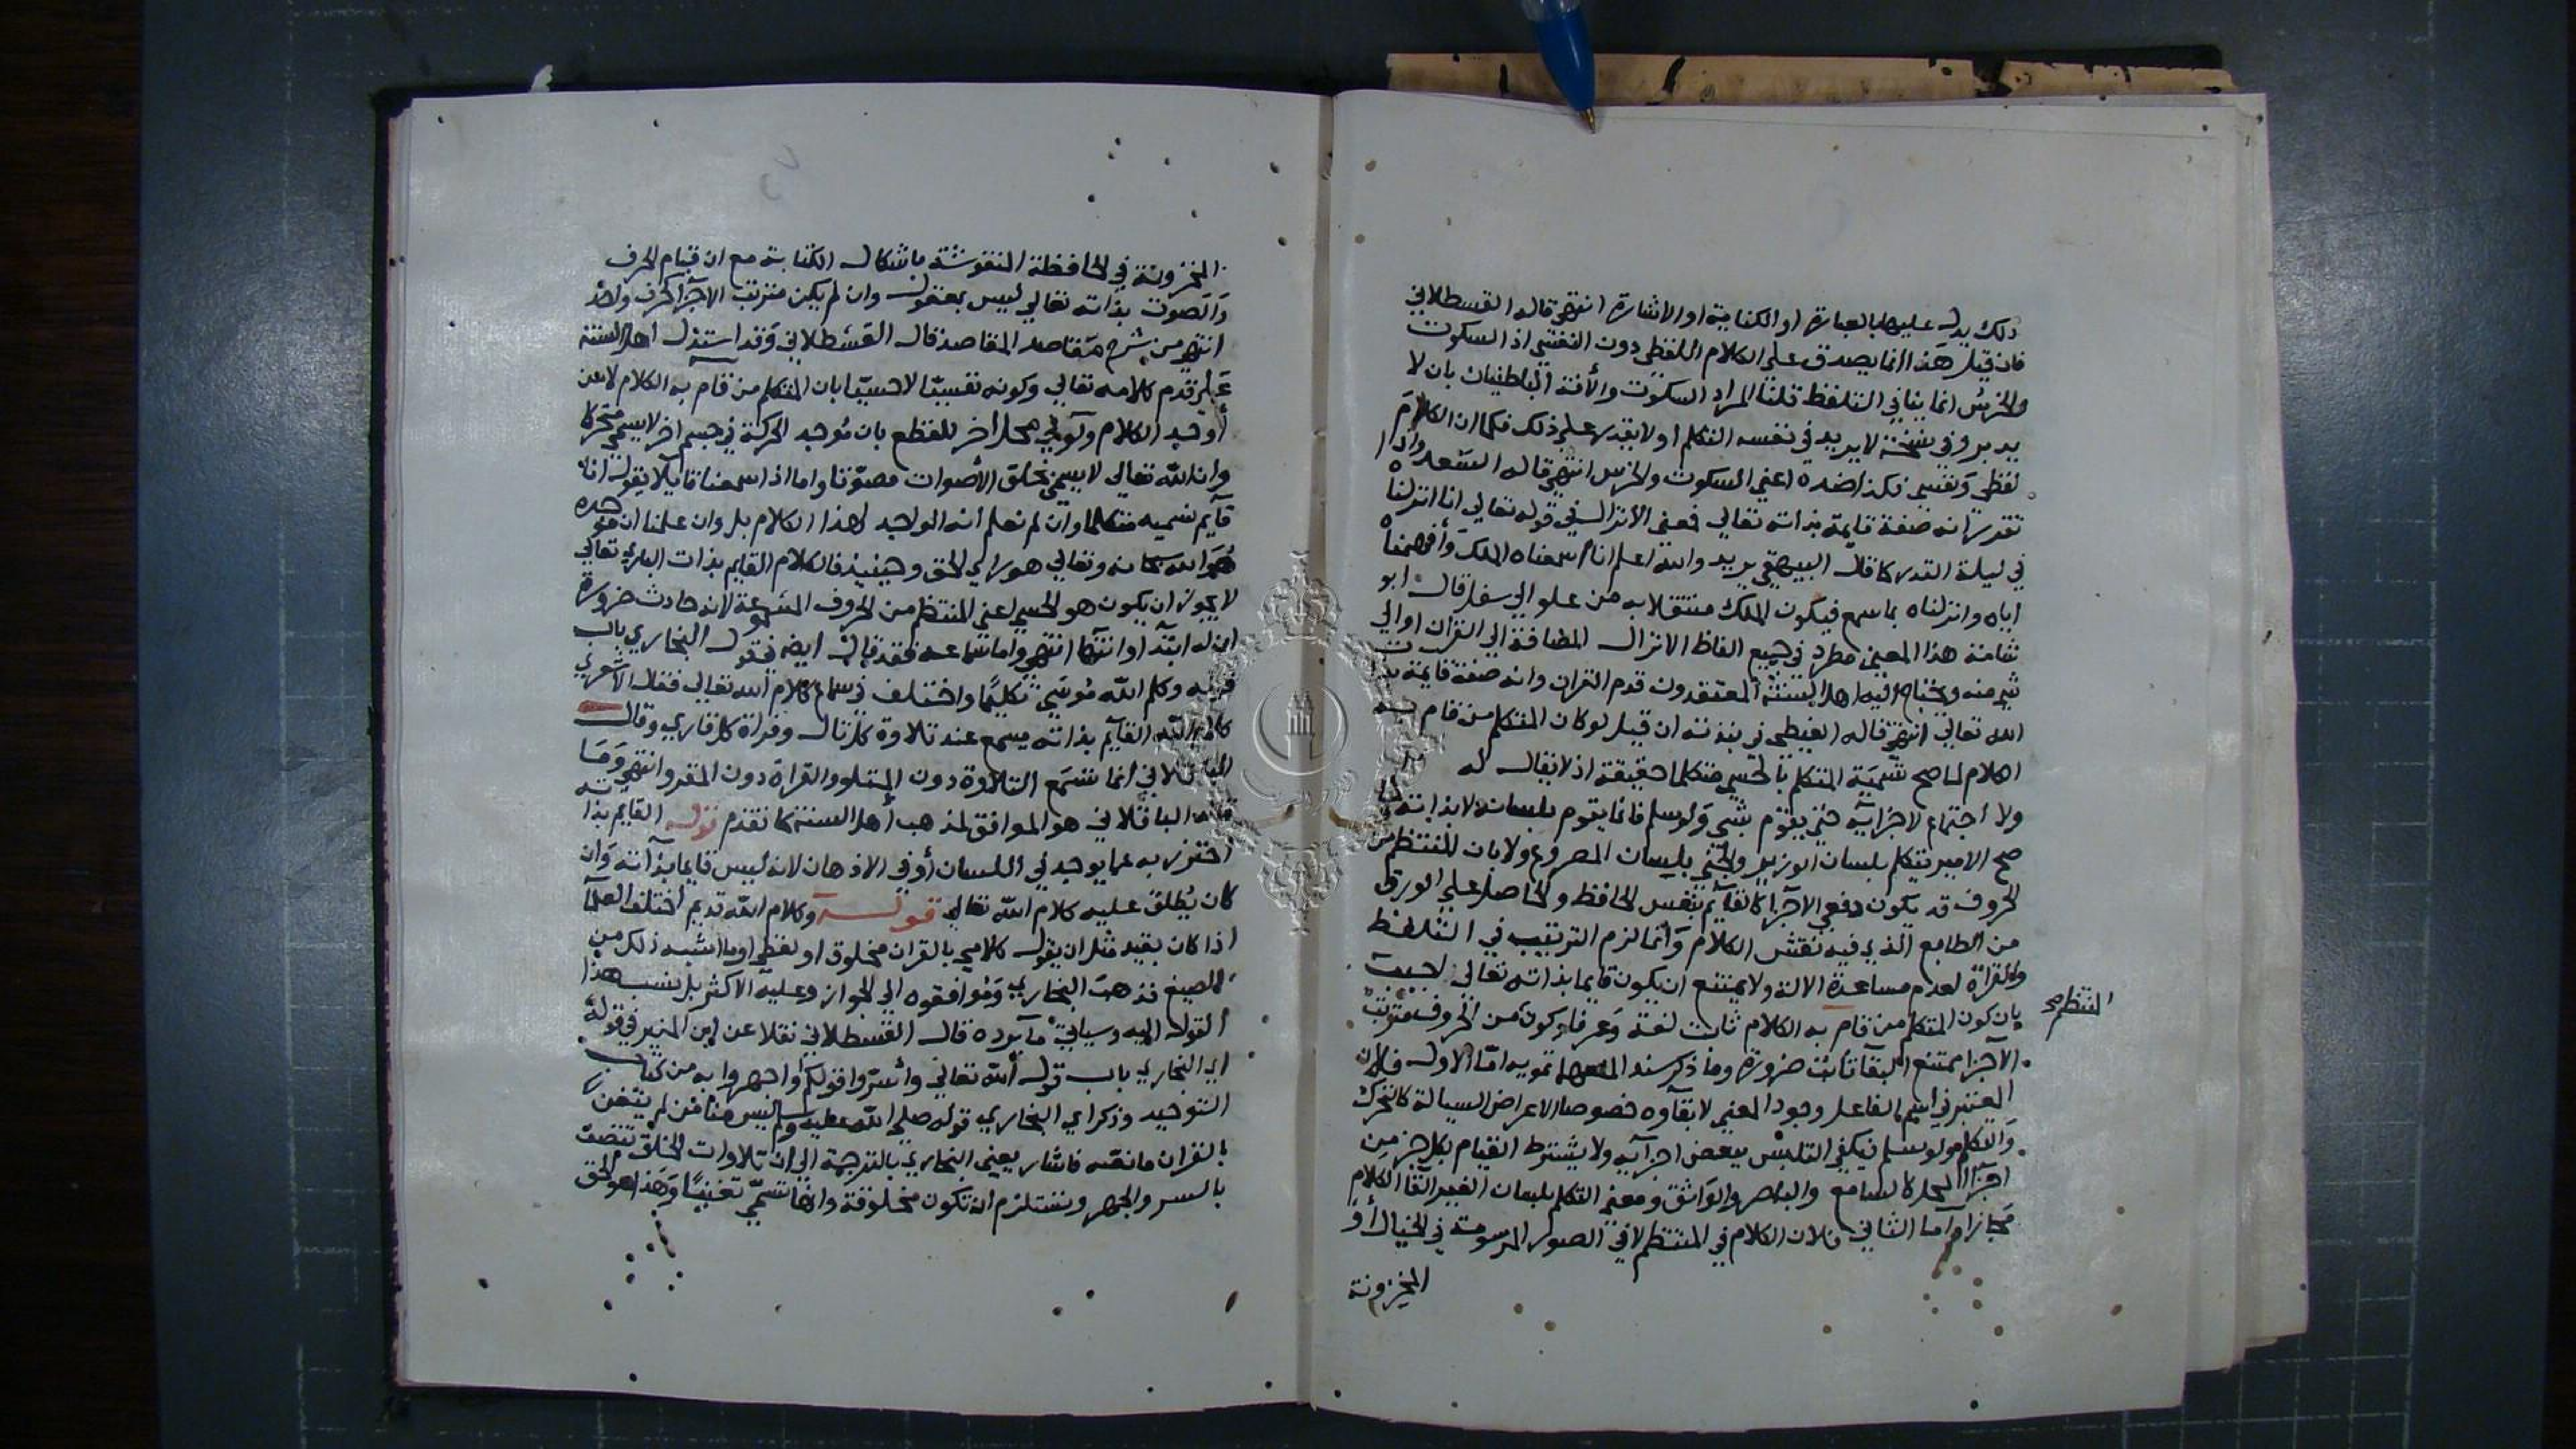 ذلك يدل عليها بالعبارة او الكتابة او الاشارة انتهى قاله القسطلاني
فان قيل هذا انما يصدق على الكلام اللفظي دون النفسي اذ السكوت
والخرس انما ينافي التلفظ قلنا المراد السكوت والأفة الباطنيان بان لا
يدبر وفي نسخة لا يريد في نفسه التكلم او لا يقدر على ذلك فكما ان الكلام
لفظي ونفسي فكذا ضده اعني السكوت والخرس انتهى قاله السعد واذا
تقرر انه صفة قايمة بذاته تعالى فمعنى الانزال في قوله تعالى انا انزلناه
في ليلة القدر كما قال البيهقي يريد والله اعلم انا اسمعناه الملك وأفهمناه
اياه وانزلناه بما سمع فيكون الملك منتقلا به من علو الي سفل قال ابو
شامة هذا المعنى مطرد في جميع الفاظ الانزال المضافة الي القران او الي
شي منه ويحتاج اليه اهل السنة المعتقدون قدم القران وانه صفة قايمة بذات
الله تعالى انتهى قاله الغيطي في نبذته ان قيل لو كان المتكلم من قام به
الكلام لما صح تسمية المتكلم بالحسي متكلما حقيقة اذ لا بقا له
ولا اجتماع لاجزايه حتى يقوم بشي ولو سلم فانما يقوم بلسانه لا بذاته
صح الامير يتكلم بلسان الوزير والجني بلسان المصروع ولا بان المنتظم من
الحروف قد يكون دفعي الاجزا كالقايم بنفس الحافظ والحاصل على الورق
من الطابع الذي فيه نقش الكلام وانما لزم الترتيب في التلفظ
والقراة لعدم مساعدة الالة ولا يمتنع ان يكون قايما بذاته تعالى
بان كون المتكلم من قام به الكلام ثابت لغة وعرفا وكون من الحروف مترتب
المنتظم صح
الاجزا ممتنع البقا ثابت ضرورة وما ذكر سند المنعهما تمويه اما الاول فلان
المعتبر في اسم الفاعل وجود المعنى لا بقاوه خصوصا الاعراض السيالة كالتحرك
والتكلم ولو سلم فيكفي التلبس ببعض اجزايه ولا يشترط القيام بكل جز من
اجزا المحل كالسامع والباصر والواثق ومعنى التكلم بلسان الغير القا الكلام
مجازا واما الثاني فلان الكلام في المنتظم لا في الصور المرسومة في الخيال أو
المخزونة
المخزونة في الحافظة المنقوشة باشكال الكتابة مع ان قيام الحرف
والصوت بذاته تعالى ليس بمعقول وان لم يكن مترتب الاجزا كحرف واحد
انتهى من شرح مقاصد المقاصد قال القسطلاني وقد استدل اهل السنة
على قدم كلامه تعالى وكونه نفسيا لا حسيا بان المتكلم من قام به الكلام لا من
أوجد الكلام ولو في محل اخر للقطع بان موجد الحركة في جسم اخر لا يسمى متحركا
وان الله تعالى لا يسمى بخلق الأصوات مصوتا واما اذا سمعنا قايلا يقول انا
قايم نسميه متكلما وان لم نعلم انه الموجد لهذا الكلام بل وان علمنا ان موجده
هو الله سبحانه وتعالى هو راي الحق وحينيذ فالكلام القايم بذات الباري تعالى
لا يجوز ان يكون هو الحسي اعني المنتظم من الحروف المسموعة لانه حادث ضرورة
ان له ابتدا وانتها انتهى واما سماعه فقد قال ايضا في قول البخاري باب
قوله وكلم الله موسى تكليما واختلف في سماع كلام الله تعالى فقال الاشعري
كلام الله القايم بذاته يسمع عند تلاوة كل تال وقراة كل قاري وقال
الباقلاني انما تسمع التلاوة دون المتلو والقراة دون المقرو انتهى وما
قاله الباقلاني هو الموافق لمذهب أهل السنة كما تقدم قوله القايم بذاته
احترز به عما يوجد في اللسان أو في الاذهان لانه ليس قايما بذاته وان
كان يطلق عليه كلام الله تعالى قوله وكلام الله قديم اختلف العلما
اذا كان بقيد مثل ان يقول كلامي بالقران مخلوق او لفظي او ما اشبه ذلك من
الصيغ فذهب البخاري وموافقوه الي الجواز وعليه الاكثر بل نسب هذا
القول اليه وسياتي ما يرده قال القسطلاني نقلا عن ابن المنير في قوله
اي البخاري باب قول الله تعالى وأسروا قولكم أو اجهروا به من كتاب
التوحيد وذكر اي البخاري قوله صلى الله عليه وسلم ليس منا من لم يتغن
بالقران ما نصه فاشار يعني البخاري بالترجمة الي ان تلاوات الخلق تتصف
بالسر والجهر ويستلزم ان تكون مخلوقة وانها تسمى تغنيا وهذا هو الحق